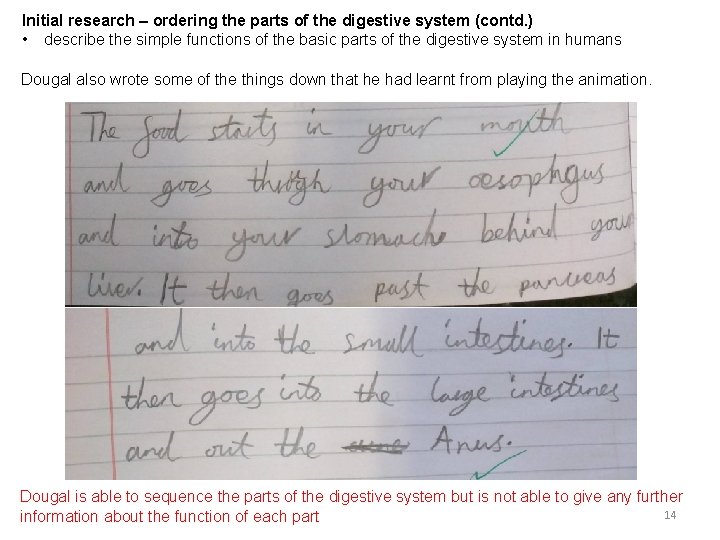 Initial research – ordering the parts of the digestive system (contd.)
• describe the simple functions of the basic parts of the digestive system in humans
Dougal also wrote some of the things down that he had learnt from playing the animation.
The food starts in your mouth
and goes through your oesophgus
and into your stomache behind your
liver. It then goes past the pancreas
and into the small intestines. It
then goes into the large intestines
and out the Anus.
Dougal is able to sequence the parts of the digestive system but is not able to give any further
information about the function of each part
14